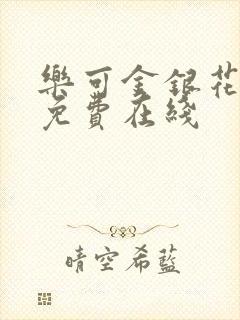 樂可金銀花
免費在綫
晴空希藍